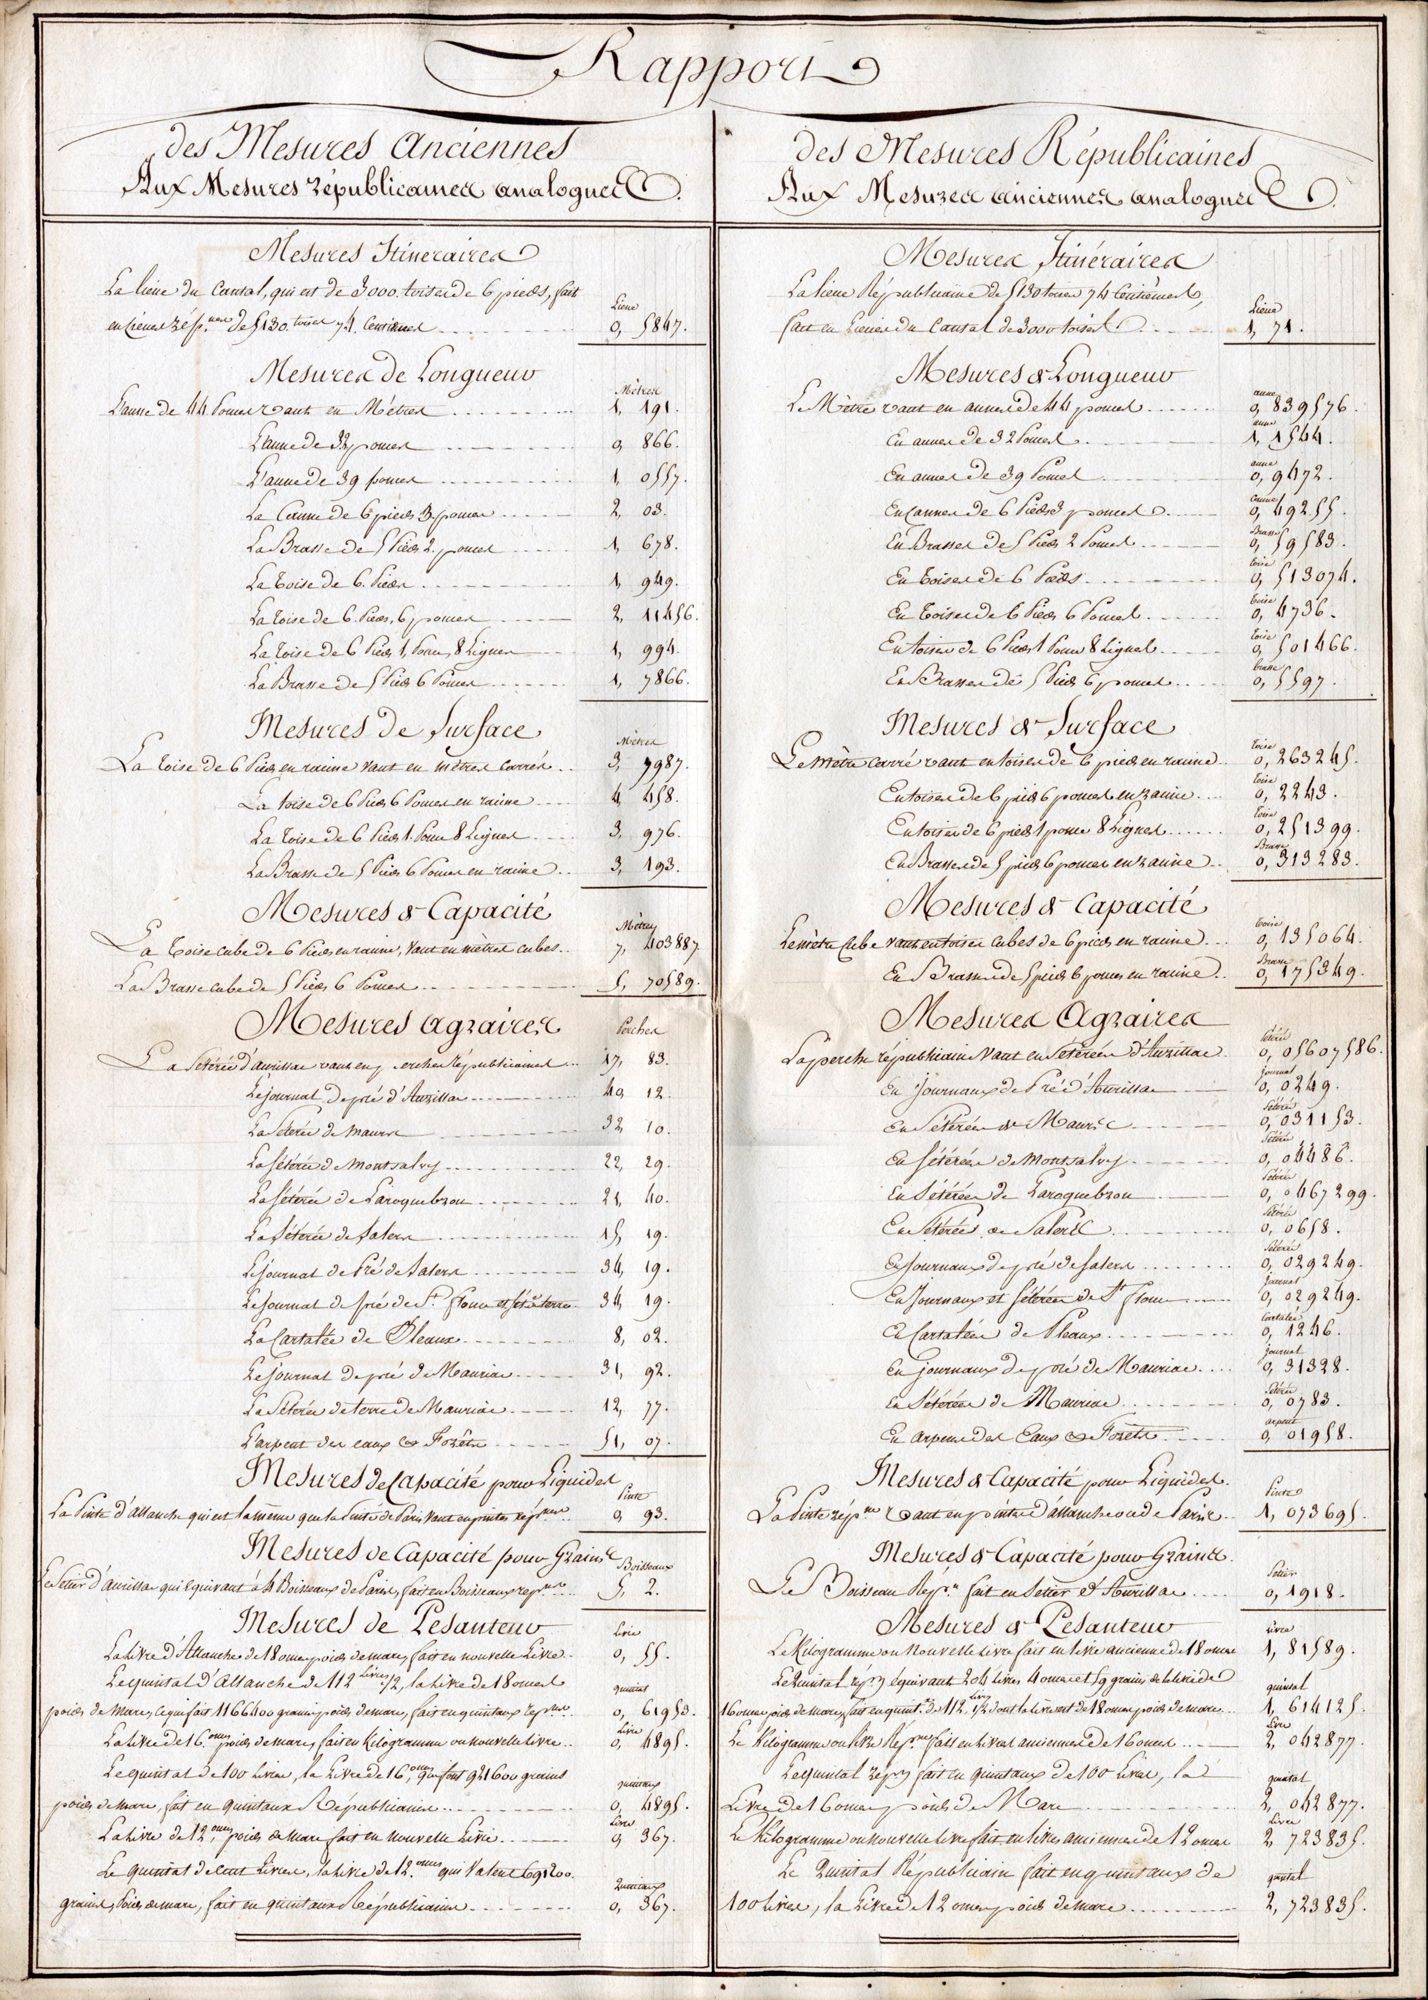 Rapport
des Mesures Anciennes
Aux Mesures républicaines analogues
Mesures Itinéraires
La lieue du Cantal, qui est de 3000. toises de 6 pieds, fait
Lieue
en Lieues rép.nes de 5130. toises 74. Centiemes 0, 5847.
Mesures de Longueur
Mètres
L'aune de 44 Pouces vaut en Mètres 1, 191.
L'aune de 32 pouces 0, 866.
L'aune de 39 pouces 1, 0557.
La Canne de 6 pieds 3 pouces 2, 03.
La Brasse de 5 Pieds 2 pouces 1, 678.
La toise de 6. Pieds 1, 949.
La toise de 6. Pieds, 6 pouces 2, 11456.
La toise de 6 Pieds 1, Pouce, 8 Lignes 1, 994.
La Brasse de 5 Pieds 6 Pouces 1, 7866.
Mesures de Surface
Mètres
La toise de 6 Pieds en racine vaut en mètres carrés 3, 7987.
La toise de 6 Pieds 6 Pouces en racine 4, 458.
La toise de 6 Pieds 1. Pouce 8 Lignes 3, 976.
La Brasse de 5 Pieds 6 Pouces en racine 3, 193.
Mesures de Capacité
Mètres
La toise cube de 6 Pieds en racine, vaut en mètres cubes 7, 403887
La Brasse cube de 5 Pieds 6 Pouces 5, 70589.
Mesures agraires
Perches
La Sétérée d'aurillac vaut en perches Républicaines 17, 83.
Le journal de pré d'Aurillac 40, 12.
La Séterée de Maurs 32, 10.
La Sétérée de Montsalvy 22, 29.
La Sétérée de Laroquebrou 21, 40.
La Sétérée de Salers 15, 19.
Le journal de Pré de Salers 34, 19.
Le journal de pré de St. flour et Sét.e terre 34, 19.
La Cartalée de Pleaux 8, 02.
Le journal de pré de Mauriac 31, 92.
La Séterée de terre de Mauriac 12, 77.
L'arpent des eaux & Forêts 51, 07.
Mesures de Capacité pour Liquides
Pinte
La Pinte d'Allanche qui est la même que la Pinte de Paris vaut en pintes rép.nes 0, 93.
Mesures de Capacité pour Grains
Boisseaux
Le Setier d'aurillac qui équivaut à 4 Boisseaux de Paris, fait en Boisseaux rép.ns 5, 2.
Mesures de Pesanteur
Livre
La Livre d'Allanche de 18 onces poids de marc, fait en nouvelle Livre 0, 55.
Le quintal d'Allanche de 112 Livres 1/2, la Livre de 18 onces
quintal
poids de Marc, ce qui fait 1166400 grains poids de marc, fait en quintaux rép.ns 0, 61953.
Livre
La Livre de 16. onces, poids de marc, fait en Kilogramme ou nouvelle Livre 0, 4895.
Le quintal de 100 Livres, la Livre de 16, onces, qui font 921600 grains
quintaux
poids de marc, fait en quintaux Républicains 0, 4895.
Livre
La Livre de 12, onces, poids de marc fait en nouvelle Livre 0, 367.
Le quintal de cent Livres, la Livre de 12. onces qui valent 691200.
Quintaux
grains, Poids de marc, fait en quintaux Républicains 0, 367.
des Mesures Républicaines
Aux Mesures anciennes analogues
Mesures Itinéraires
La lieue Républicaine de 5130 toises 74 Centièmes,
Lieue
fait en Lieues du Cantal de 3000 toises 1, 71.
Mesures de Longueur
aune
Le Mètre vaut en aunes de 44 pouces 0, 839576.
aune
En aunes de 32 Pouces 1, 1544.
aune
En aunes de 39 Pouces 0, 9472.
Cannes
En Cannes de 6 Pieds 3 pouces 0, 49255.
Brasse
En Brasses de 5 Pieds 2 Pouces 0, 59583.
toise
En toises de 6 Pieds 0, 513074.
toise
En toises de 6 Pieds 6 Pouces 0, 4736.
toise
En toises de 6 Pieds 1 Pouce 8 Lignes 0, 501466.
brasse
En Brasses de 5 Pieds 6 pouces 0, 5597.
Mesures de Surface
toise
Le mètre carré vaut en toises de 6 pieds en racine 0, 263245.
toise
En toises de 6 pieds 6 pouces en racine 0, 2243.
toise
En toises de 6 pieds 1 pouce 8 Lignes 0, 251399.
Brasse
En Brasses de 5 pieds 6 pouces en racine 0, 313283.
Mesures de Capacité
toise
Le mètre Cube vaut en toises cubes de 6 pieds en racine 0, 135064.
Brasse
En Brasses de 5 pieds 6 pouces en racine 0, 175349.
Mesures Agraires
Sétérée
La perche républicaine vaut en Sétérées d'Aurillac 0, 05607586.
journal
En journaux de Pré d'Aurillac 0, 0249.
Sétérée
En Sétérées de Maurs 0, 031153.
Sétérée
En Sétérées de Montsalvy 0, 04486.
Sétérée
En Sétérées de Laroquebrou 0, 0467299.
Sétérée
En Sétérées de Salers 0, 0658.
Sétérée
En journaux de pré de Salers 0, 029249.
journal
En journaux et Sétérées de St flour 0, 029249.
Cartalée
En Cartalées de Pleaux 0, 1246.
journal
En journaux de pré de Mauriac 0, 31328.
Sétérée
En Sétérées de Mauriac 0, 0783.
arpent
En arpens des Eaux & Forêts 0, 01958.
Mesures de Capacité pour Liquides
Pinte
La Pinte rép.ne vaut en pinte d'allanche ou de Paris 1, 073695.
Mesures de Capacité pour Grains
Setier
Le Boisseau Rép.n fait en Setier d'Aurillac 0, 1918.
Mesures de Pesanteur
Livre
Le Kilogramme ou Nouvelle Livre fait en livre ancienne de 18 onces 1, 81589.
Le quintal rép.n équivaut 204 Livres 4 onces et 59 grains de la Livre de
quintal
16 onces poids de marc, fait en quint.x de 112, Livres 1/2 dont la Livre est de 18 onces poids de marc 1, 614125.
Livre
Le Kilogramme ou livre Rép.ne fait en Livres anciennes de 16 onces 2, 042877.
Le quintal rép.n fait en quintaux de 100 Livres, la
quintal
Livre de 16 onces poids de Marc 2, 042877.
Livre
Le Kilogramme ou nouvelle Livre fait en livres anciennes de 12 onces 2, 723835.
Le Quintal Républicain fait en quintaux de
quintal
100 Livres, la Livre de 12 onces poids de marc 2, 723835.